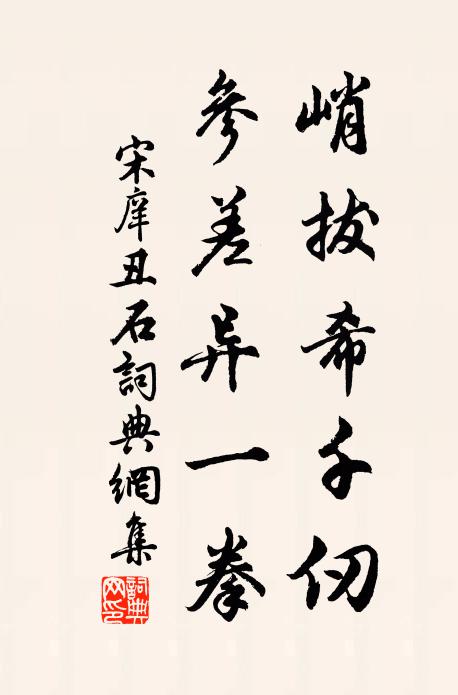 峭拔希千仞
參差异一拳
宋庠丑石詞典網集
詞典網印